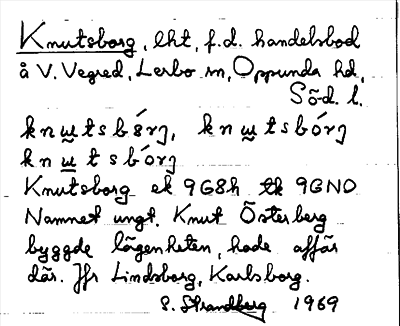 Knutsborg, lht, f.d. handelsbod
å V. Vegred, Lerbo sn, Oppunda hd,
Söd. l.
knu̲tsbórj, knu̲tsbórj
knu̲tsbórj
Knutsborg ek 9G8h tk 9GNO
Namnet ungt. Knut Österberg
byggde lägenheten, hade affär
där. Jfr Lindsborg, Karlsborg.
S. Strandberg 1969